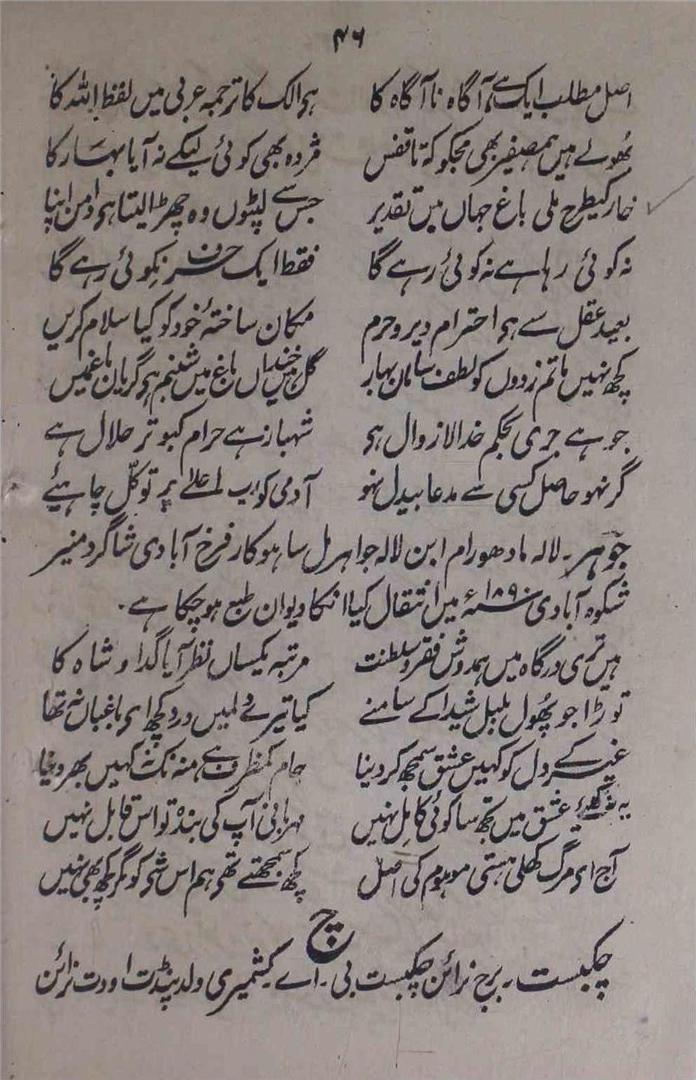 ۴۶
اصل مطلب ایک ہے آگاہ ناآگاہ کا ہو الک کا ترجمہ عربی میں لفظ اللہ کا
بھولے ہیں ہمصفیر بھی مجکو کہ تا قفس مژدہ بھی کوئی لیکے نہ آیا بہار کا
خار کیطرح ملی باغ جہاں میں تقدیر جس سے لپٹوں وہ چھڑا لیتا ہو دامن اپنا
نہ کوئی رہا ہے نہ کوئی رہے گا فقط ایک حرف نکوئی رہے گا
بعید عقل سے ہو احترام دیر و حرم مکان ساختۂ خود کو کیا سلام کریں
کچھ نہیں ماتم زدوں کو لطف سامان بہار گل ہیں خنداں باغ میں شبنم ہو گریاں باغ میں
جو ہے جری بحکم خدا لازوال ہو شہباز ہے حرام کبوتر حلال ہے
گر نہو حاصل کسی سے مدعا بیدل نہو آدمی کو رب اعلے پر توکل چاہیئے
جوہر۔ لالہ مادھورام ابن لالہ جواہر مل ساہوکار فرخ آبادی شاگرد منیر
شکوہ آبادی ۱۸۹۰ء میں انتقال کیا انکا دیوان طبع ہوچکا ہے۔
ہیں تری درگاہ میں ہمدوش فقر و سلطنت مرتبہ یکساں نظر آیا گدا و شاہ کا
توڑا جو پھول بلبل شیدا کے سامنے کیا تیرے دلمیں درد کچھ ای باغباں نہ تھا
غیر کے دل کو کہیں عشق سمجھ کر دینا جام کمظرف ہے منہ تک نہ کہیں بھر دینا
یہ عشق میں تجھ سا کوئی کامل نہیں مہربانی آپ کی بندہ تو اس قابل نہیں
آج ای مرگ کھلی ہستی موہوم کی اصل کچھ سمجھتے تھے ہم اس شی کو مگر کچھ بھی نہیں
چ
چکبست۔ برج نرائن چکبست بی۔ اے کشمیری ولد پنڈت اودت نرائن